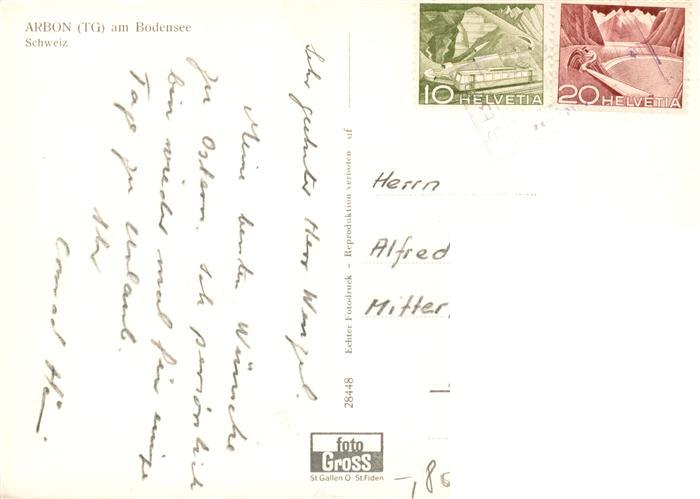 ARBON (TG) am Bodensee
Schweiz
Sehr geehrter Herr Wenzel.
Meine besten Wünsche
zu Ostern. Ich persönlich
bin wieder mal für einige
Tage zu Urlaub.
Ihr
Conrad
28448 Echter Fotodruck – Reproduktion verboten uf
10 HELVETIA
20 HELVETIA
Herrn
Alfred
Mitter
foto
Gross
St Gallen O St.Fiden
-,80